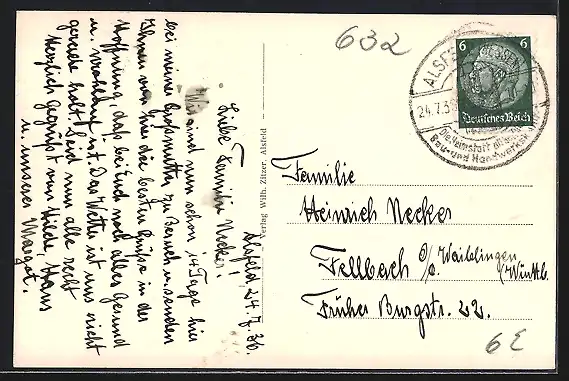 Alsfeld, 24.7.36.
Liebe Familie Necker!
Wir sind nun schon 14 Tage hier
bei meiner Großmutter zu Besuch u. senden
Ihnen von hier die besten Grüße in der
Hoffnung, daß bei Euch noch alles gesund
u. wohlauf ist. Das Wetter ist uns nicht
gerade hold. Seid nun alle recht
herzlich gegrüßt von Hilde, Hans
u. unserer Margot.
Verlag Wilh. Zitzer, Alsfeld
632
ALSFELD
24.7.36
Die Heimstatt alter
Bau- und Handwerkskunst
6 6
Deutsches Reich
Familie
Heinrich Necker
Fellbach O/a. Waiblingen
/Wüttb.
Früher Burgstr. 22.
6E